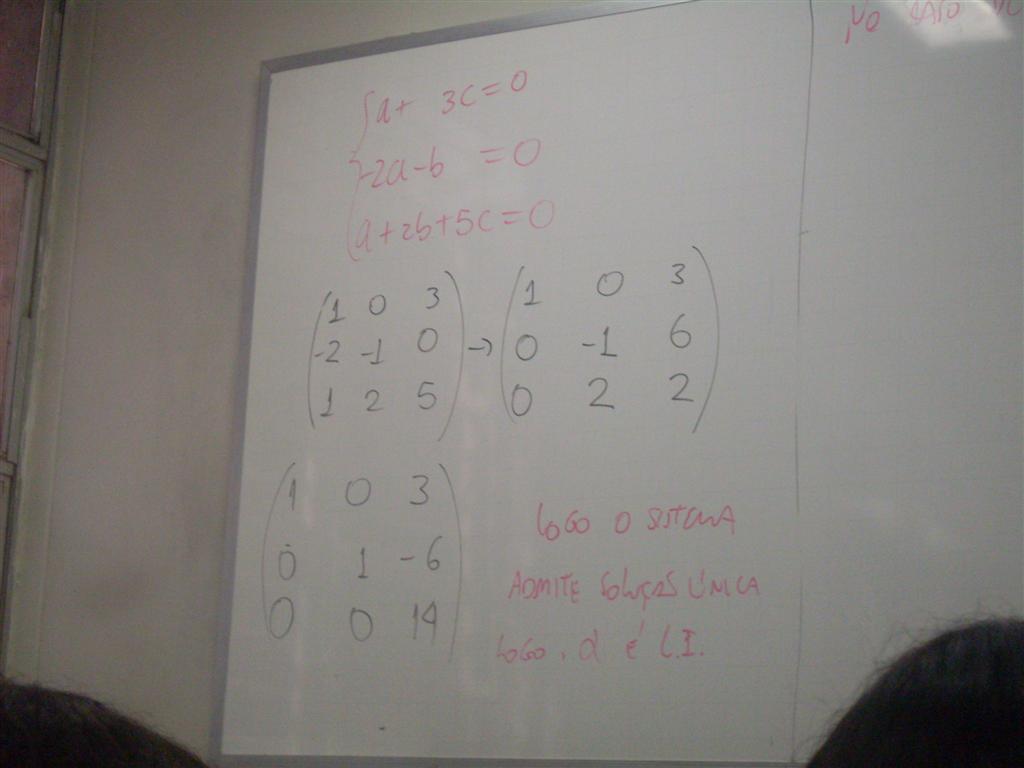 a + 3c = 0
-2a - b = 0
a + 2b + 5c = 0
1 0 3
-2 -1 0
1 2 5
→
1 0 3
0 -1 6
0 2 2
1 0 3
0 1 -6
0 0 14
LOGO O SISTEMA
ADMITE SOLUÇÃO ÚNICA
LOGO, α É L.I.
NO